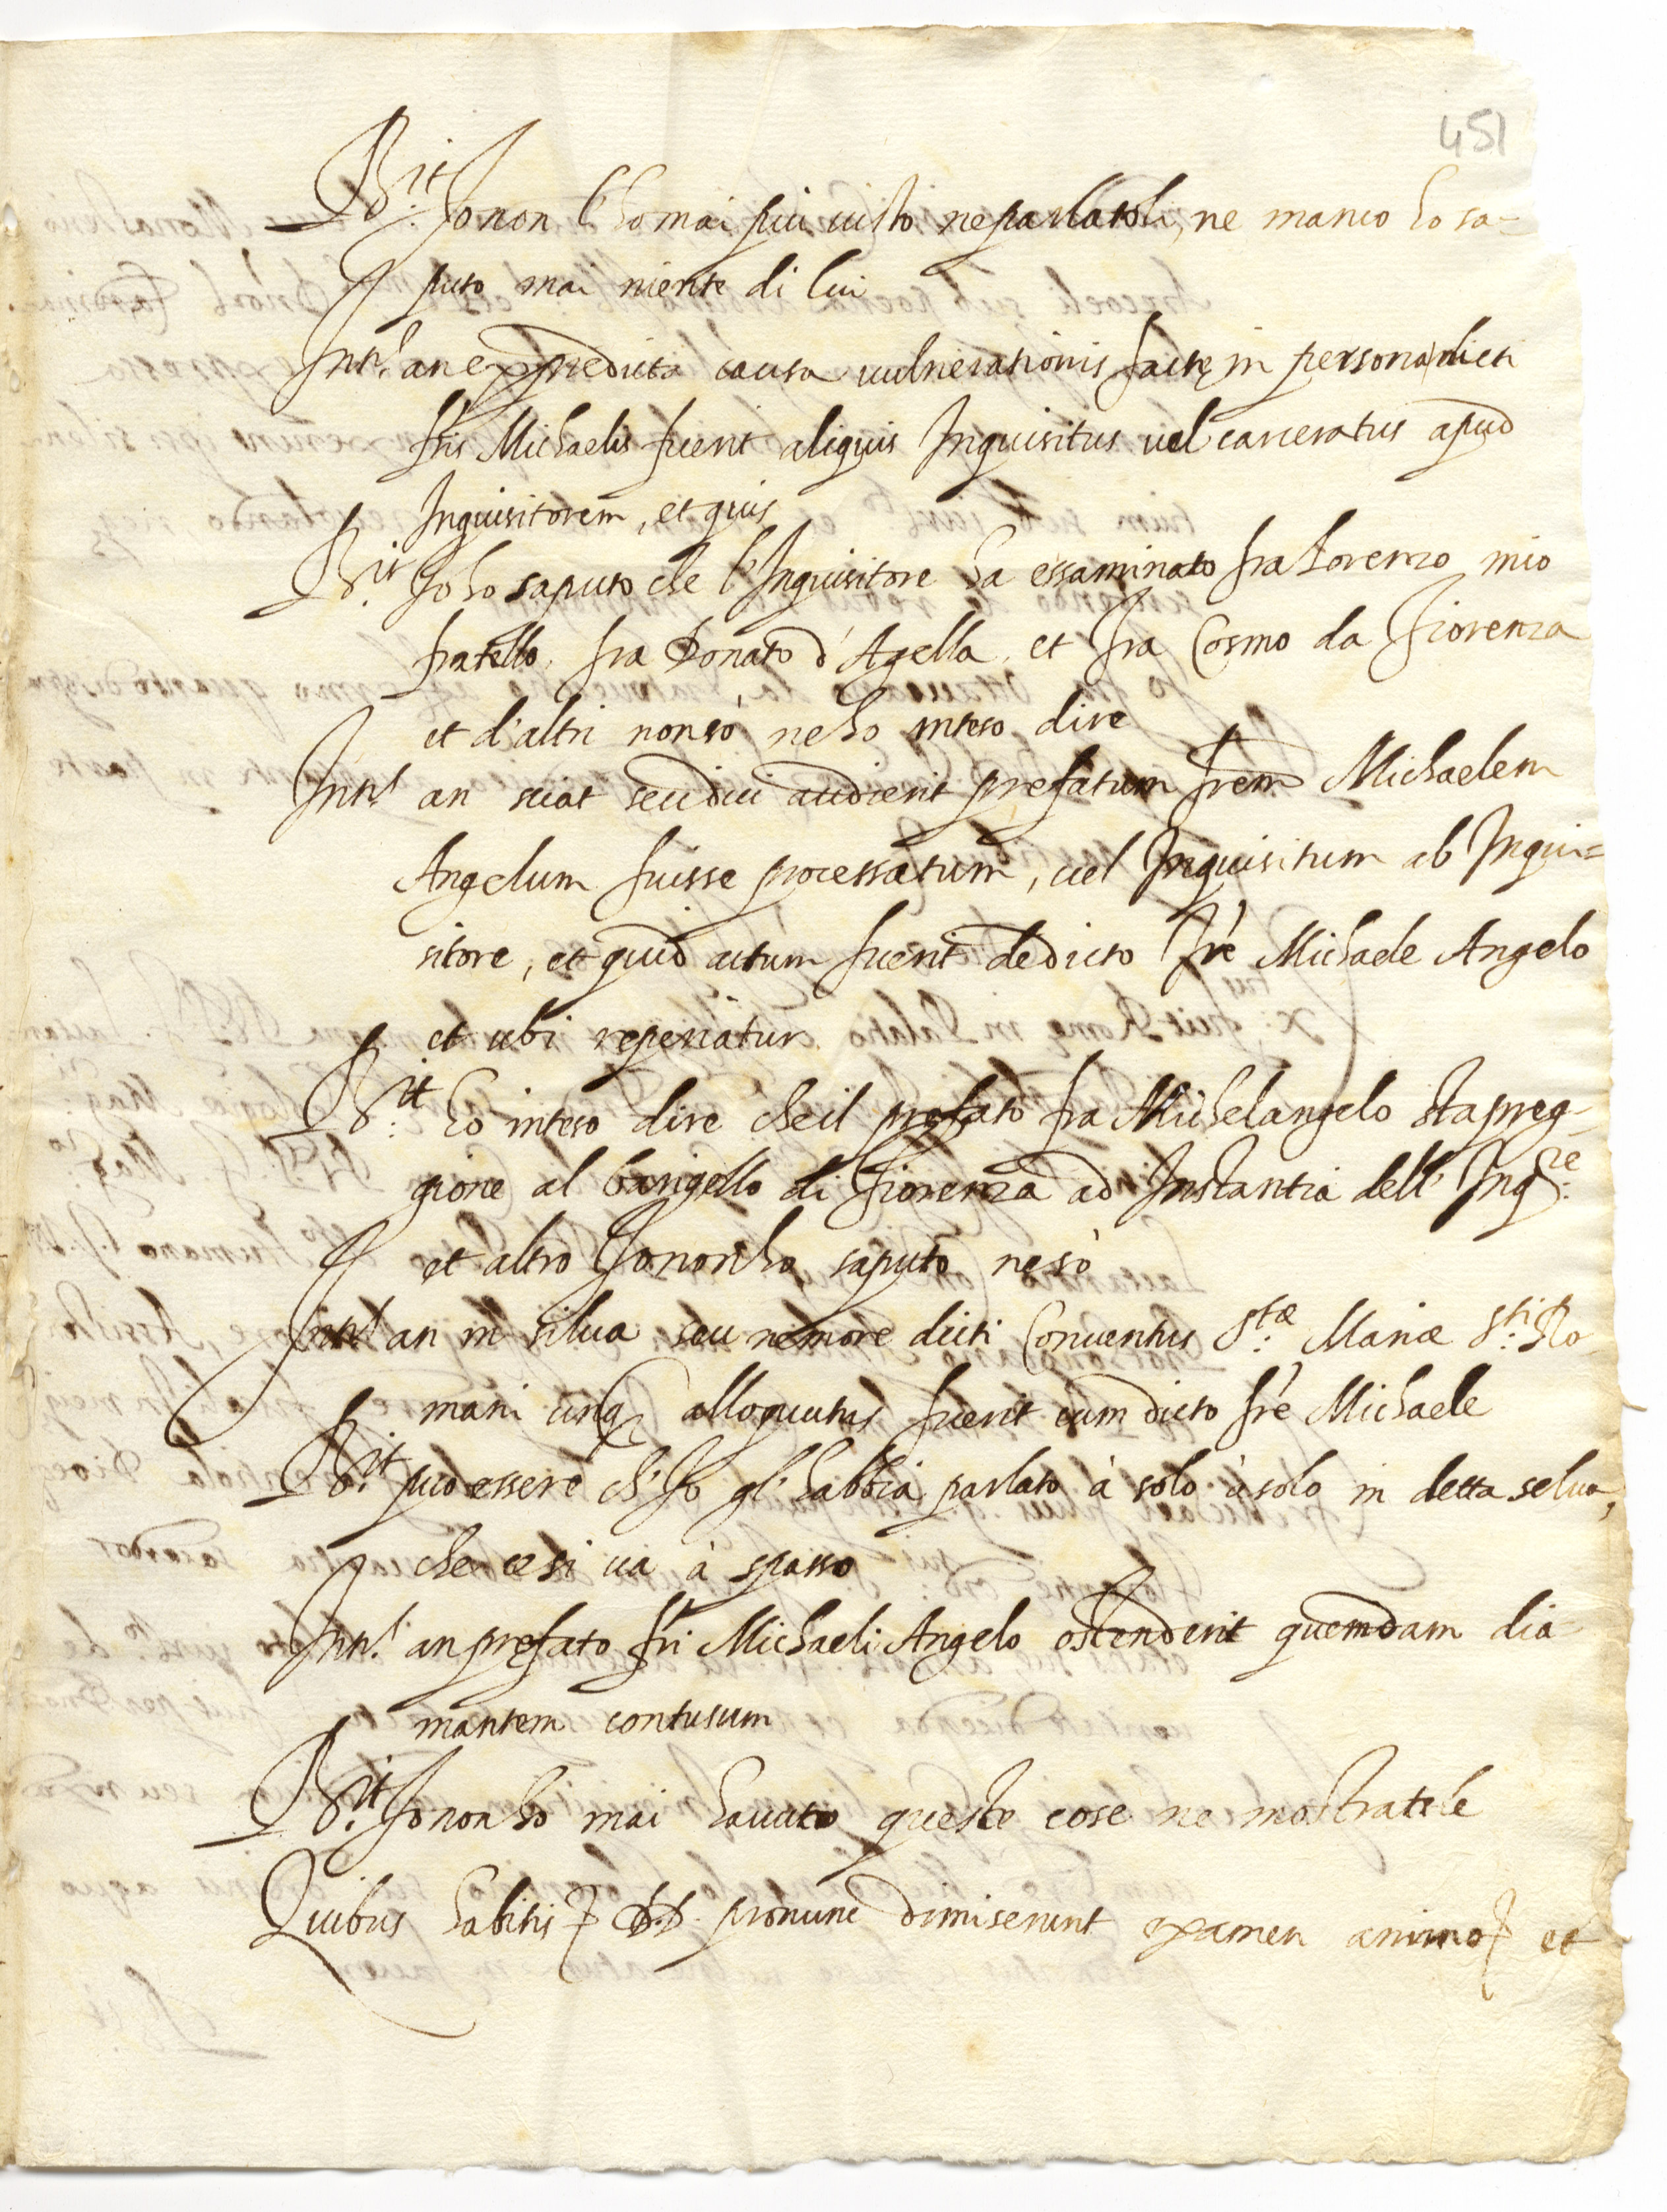 451
R.it Io non l'ho mai piu uisto ne parlatoli, ne manco ho sa-
puto mai niente di lui
Intt. an ex predicta causa uulnerationis factę in persona dicti
fris Michaelis fuerit aliquis Inquisitus uel carceratus apud
Inquisitorem, et quis
R.it Io ho saputo che l'Inquisitore ha essaminato fra Lorenzo mio
fratello, fra Donato d'Agella, et fra Cosmo da Fiorenza
et d'altri non sò, ne ho inteso dire
Intt. an sciat seu dici audierit prefatum frem Michaelem
Angelum fuisse processatum, uel Inquisitum ab Inqui=
sitore, et quid actum fuerit de dicto fre Michaele Angelo
et ubi reperiatur
R.it ho inteso dire che il prefato fra Michelangelo sta preg-
gione al bargello di Fiorenza ad Instantia dell'Inq.re
et altro Io non ho saputo ne sò
Intt. an in silua seu nemore dicti Conuentus S.tæ Mariæ S.ti Ro
mani unq alloquutus fuerit cum dicto fre Michaele
R.it puo essere ch'Io gl'habbia parlato à solo à solo in detta selua,
che ce si ua à spasso
Intt. an prefato fri Michaeli Angelo ostenderit quemdam dia
mantem contusum
R.it Io non ho mai hauuto queste cose ne mostratele
Quibus habitis DD. pro nunc dimiserunt examen animo et